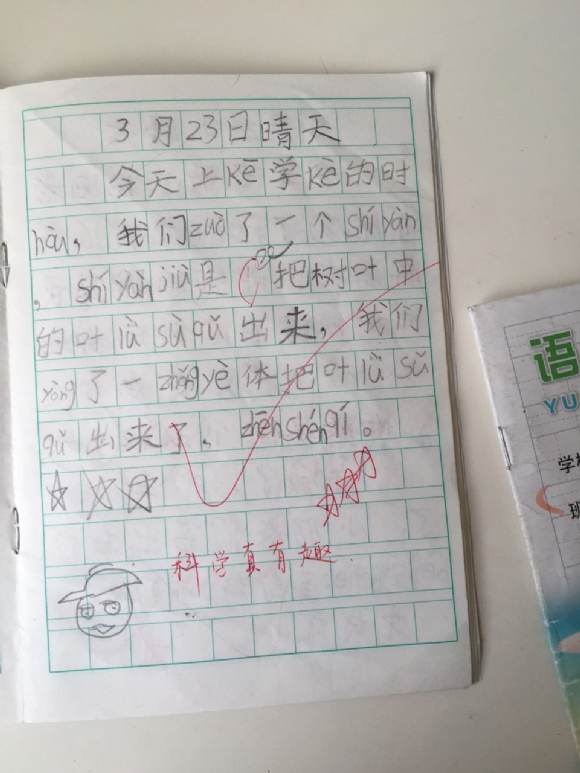 3月23日晴天
今天上kè学kè的时
hòu，我们zuò了一个shí yàn
，shí yàn jiù是把树叶中
的叶lǜ sù qǔ出来，我们
yòng了一zhǒng yè体把叶lǜ sù
qǔ出来了，zhēn shén qí。
科学真有趣
语
YU
学校
班